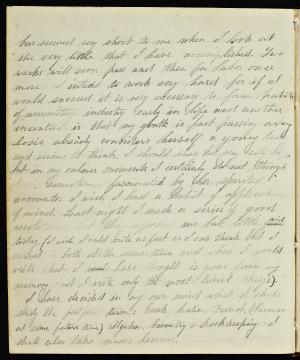 has seemed very short to me when I look at
the very little that I have accomplished. Two
weeks will soon pass and then for labor once
more. I intend to work very hard for if I
would succeed it is very necessary to form habits
of industry early in life and another
incentive is that my youth is fast passing away
Josie already considers herself a young lady
and seems to think I should
but in my calmer moments I certainly do not though
I am sometimes fascinated by her spirited
accounts. I wish I had a habit of application
of mind. Last night I made a series of good
me but little
to day. I wish I could write as fast as I can think but I
cannot both at the same time and when I would
write what I have thought is gone from my
memory and I write only the most
I have decided in my own mind what I shall
study the
at some future time) Algebra, Geometry & Book keeping. I
shall also take music lessons.